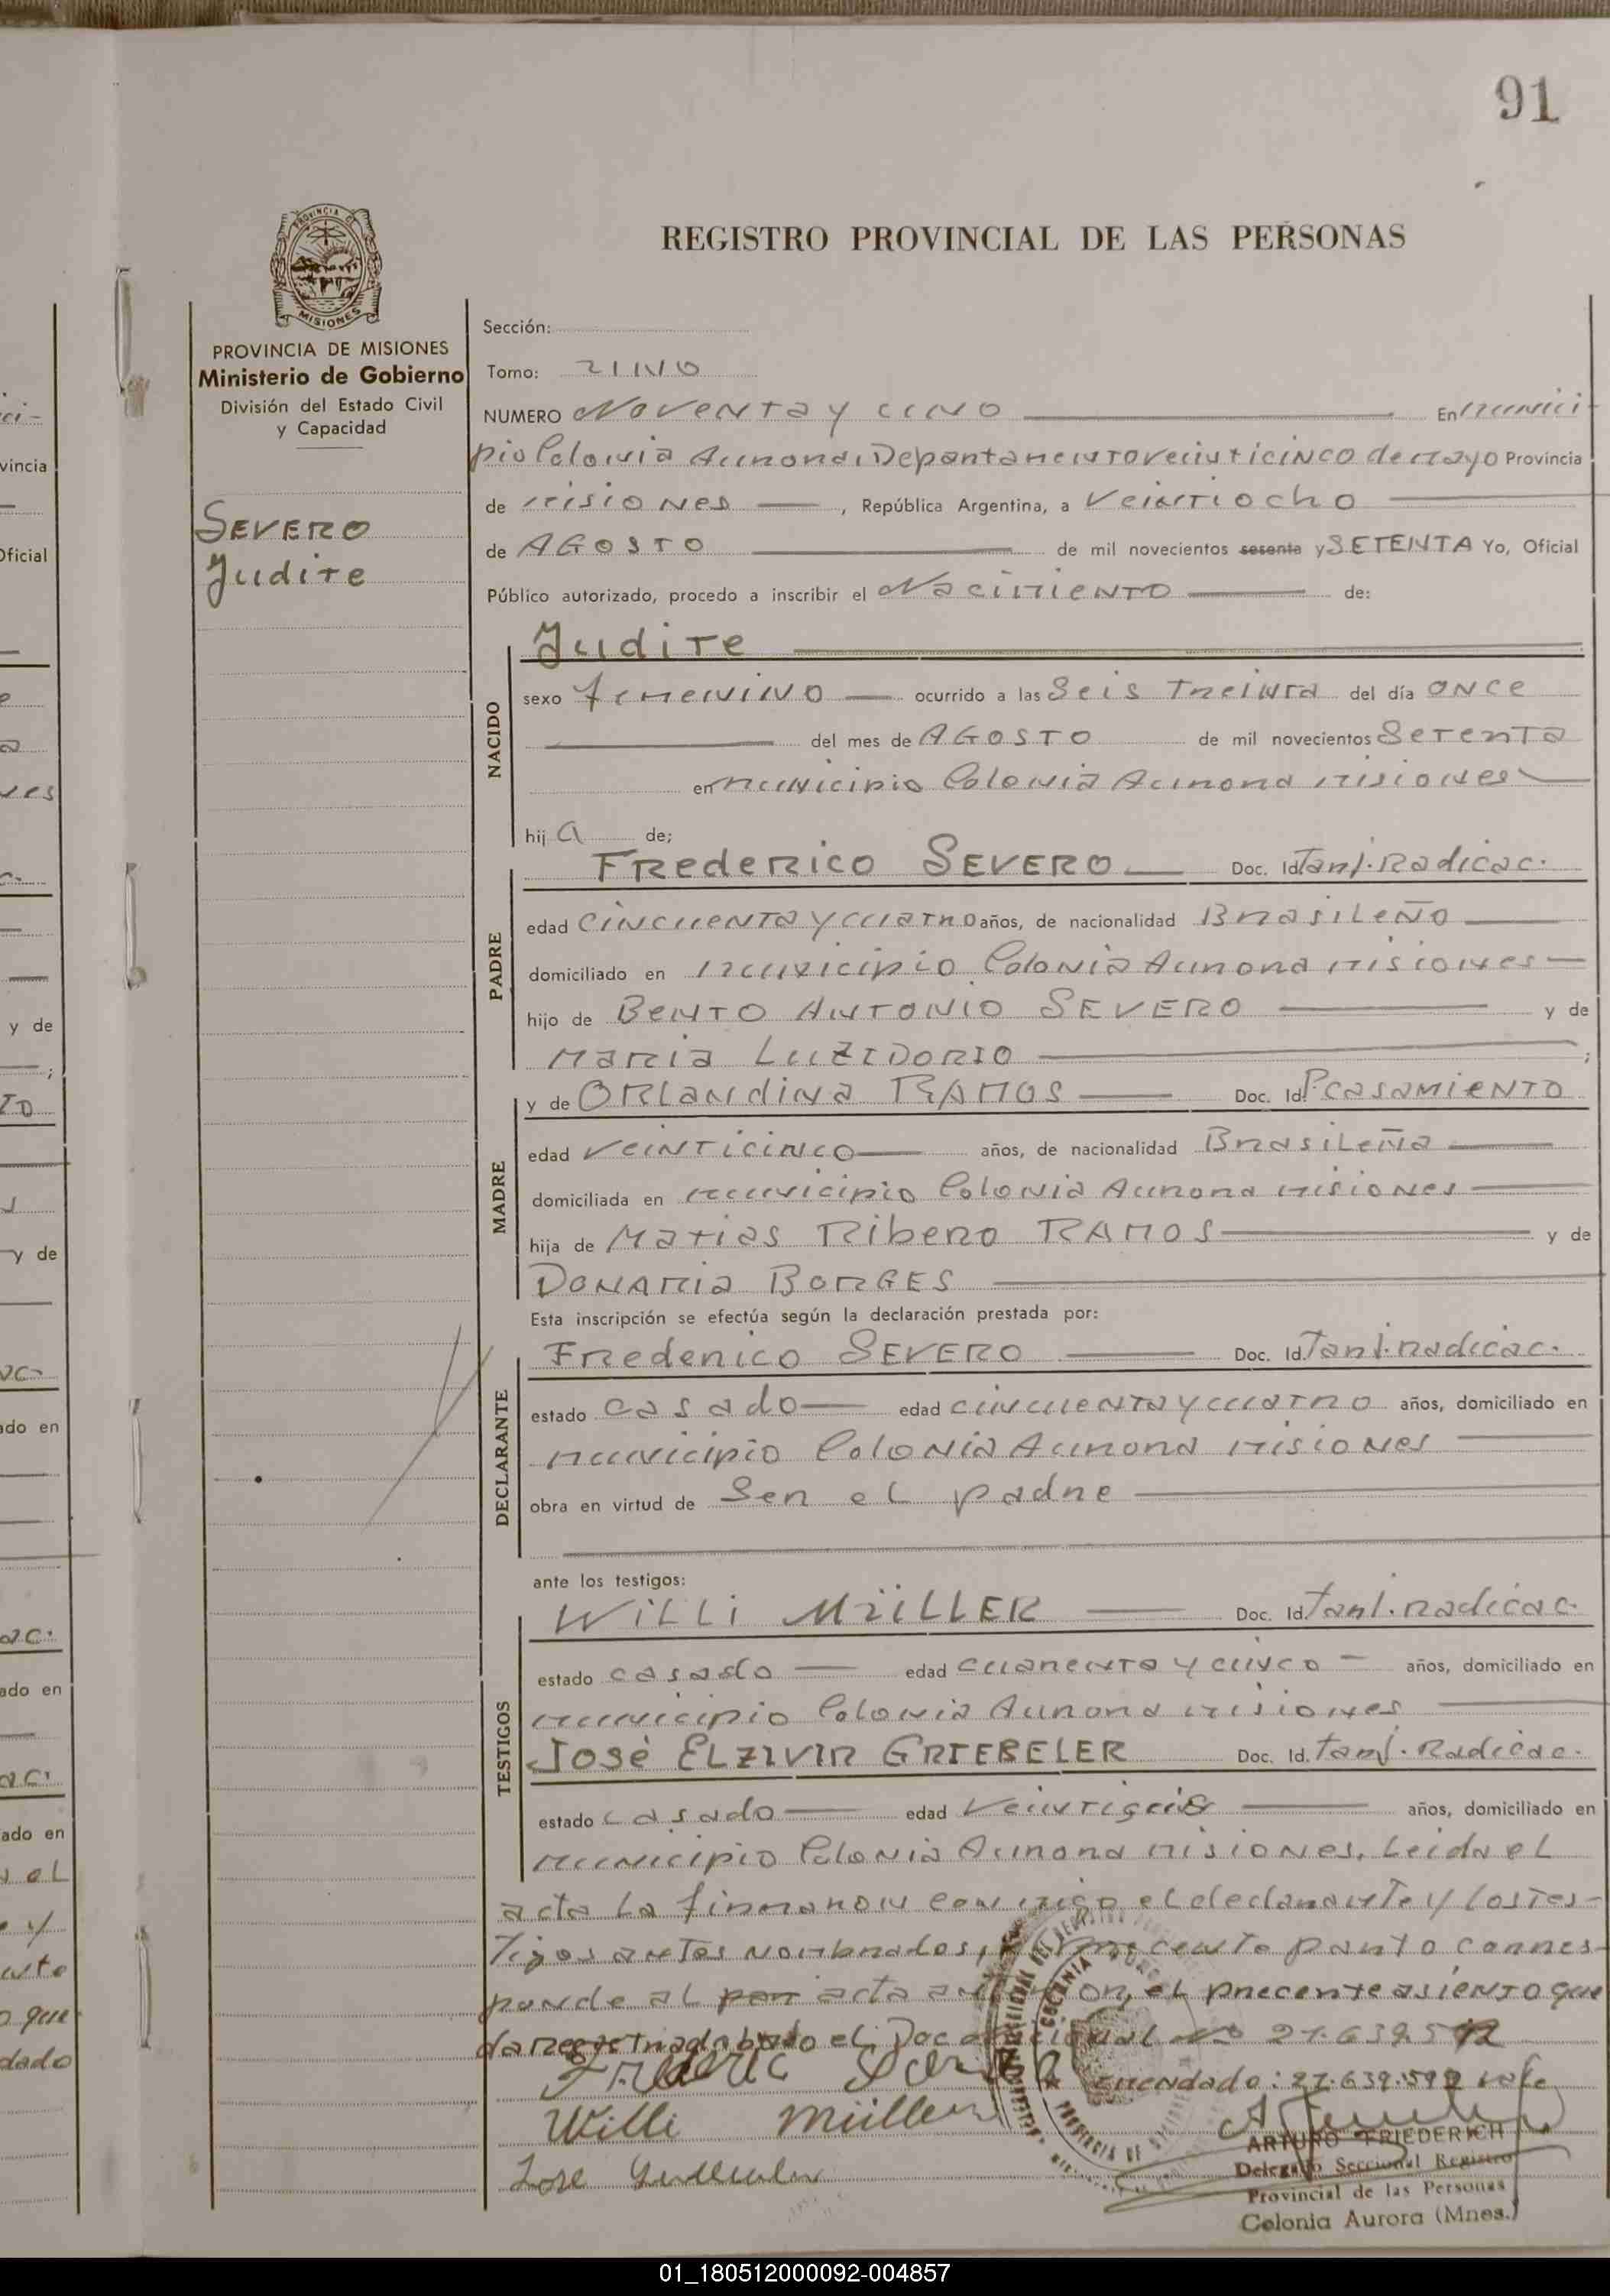 91
REGISTRO PROVINCIAL DE LAS PERSONAS
PROVINCIA DE MISIONES
PROVINCIA DE MISIONES
Ministerio de Gobierno
División del Estado Civil
y Capacidad
SEVERO
Judite
Sección:
Tomo: 21110
NUMERO Noventa y uno En munici
pio Colonia Aurora, Departamento veinticinco de mayo Provincia
de misiones, República Argentina, a veintiocho
de AGOSTO de mil novecientos sesenta y SETENTA Yo, Oficial
Público autorizado, procedo a inscribir el Nacimiento de:
NACIDO
Judite
sexo femenino ocurrido a las Seis Treinta del día once
del mes de AGOSTO de mil novecientos Setenta
en municipio Colonia Aurora misiones
hij a de;
PADRE
Frederico SEVERO Doc. Id Tarj. Radicac.
edad cincuenta y cuatro años, de nacionalidad Brasileño
domiciliado en municipio Colonia Aurora misiones
hijo de Bento Antonio SEVERO y de
Maria LUZIDORIO ;
MADRE
y de Orlandina RAMOS Doc. Id P.casamiento
edad veinticinco años, de nacionalidad Brasileña
domiciliada en municipio Colonia Aurora misiones
hija de Matias Ribero RAMOS y de
Donaria BORGES
Esta inscripción se efectúa según la declaración prestada por:
DECLARANTE
Frederico SEVERO Doc. Id. Tarj. radicac.
estado casado edad cincuenta y cuatro años, domiciliado en
municipio Colonia Aurora misiones
obra en virtud de Ser el padre
ante los testigos:
TESTIGOS
Willi MÜLLER Doc. Id. tarj. radicac.
estado casado edad cuarenta y cinco años, domiciliado en
municipio Colonia Aurora misiones
José Elzivir GRIEBELER Doc. Id. tarj. Radicac.
estado casado edad veintiseis años, domiciliado en
municipio Colonia Aurora misiones. Leida el
acta la firmaron conmigo el declarante y los tes-
tigos antes nombrados, parto corres-
ponde al par acta el precente asiento que
da registrado bajo el Doc Nº 21.639.592
Frederic Enmendado: 21.639.592 vale
Willi Müller
Jose
ARTURO FRIEDERICH
Delegado Seccional Registro
Provincial de las Personas
Colonia Aurora (Mnes.)
01_180512000092-004857